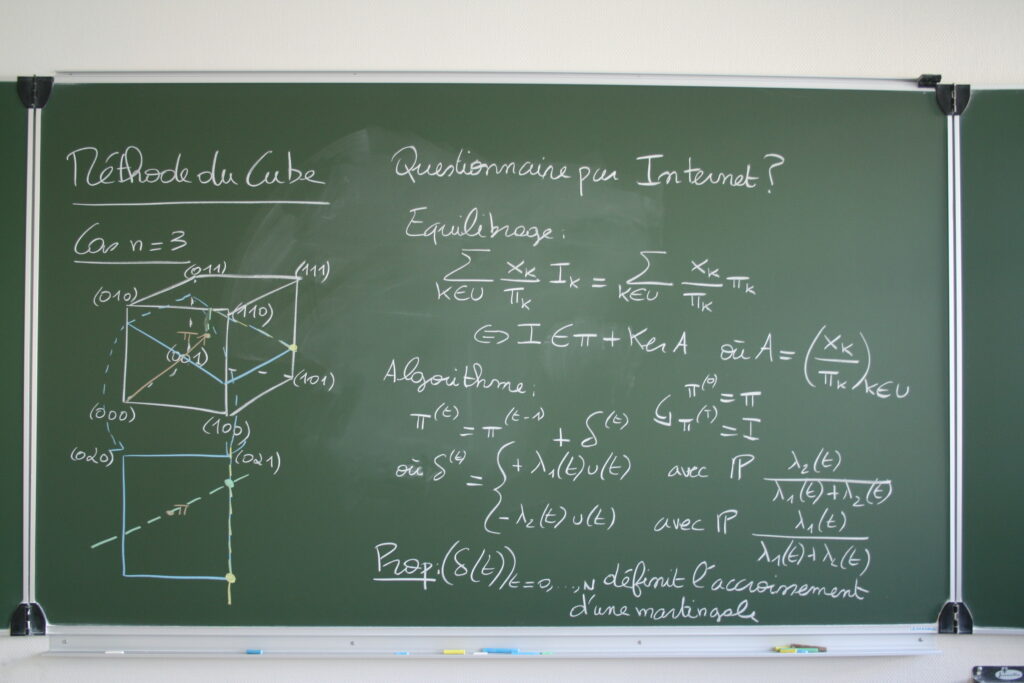 Méthode du Cube
Cas n = 3
(011) (111)
(010) (110)
π
(001)
(101)
(000) (100)
(020) (021)
π
Questionnaire par Internet ?
Equilibrage :
∑_{K∈U} x_K/π_K I_K = ∑_{K∈U} x_K/π_K π_K
⇔ I ∈ π + Ker A où A = (x_K/π_K)_{K∈U}
Algorithme :
π^{(t)} = π^{(t-1)} + δ^{(t)}
π^{(0)} = π
π^{(T)} = I
où δ^{(t)} = { + λ₁(t)u(t) avec ℙ λ₂(t)/(λ₁(t)+λ₂(t))
- λ₂(t)u(t) avec ℙ λ₁(t)/(λ₁(t)+λ₂(t))
Prop : (δ(t))_{t=0,...,N} définit l'accroissement
d'une martingale